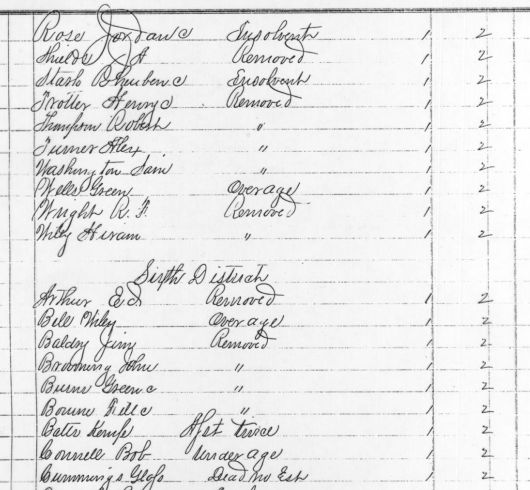 Rose Jordan c Insolvent 1 2
Shields J A Removed 1 2
Stark Reuben c Insolvent 1 2
Trotter Henry c Removed 1 2
Thompson Robert " 1 2
Turner Alex " 1 2
Washington Sam " 1 2
Wells Green Overage 1 2
Wright R. F. Removed 1 2
Wiley Hiram " 1 2
Sixth District
Arthur Ed Removed 1 2
Bell Wiley Overage 1 2
Jim Removed 1 2
Browning John " 1 2
Burns Green c " 1 2
Bowne c " 1 2
Bates Kemp Asst twice 1 2
Connell Bob Under age 1 2
Cummings Dead No Est 1 2